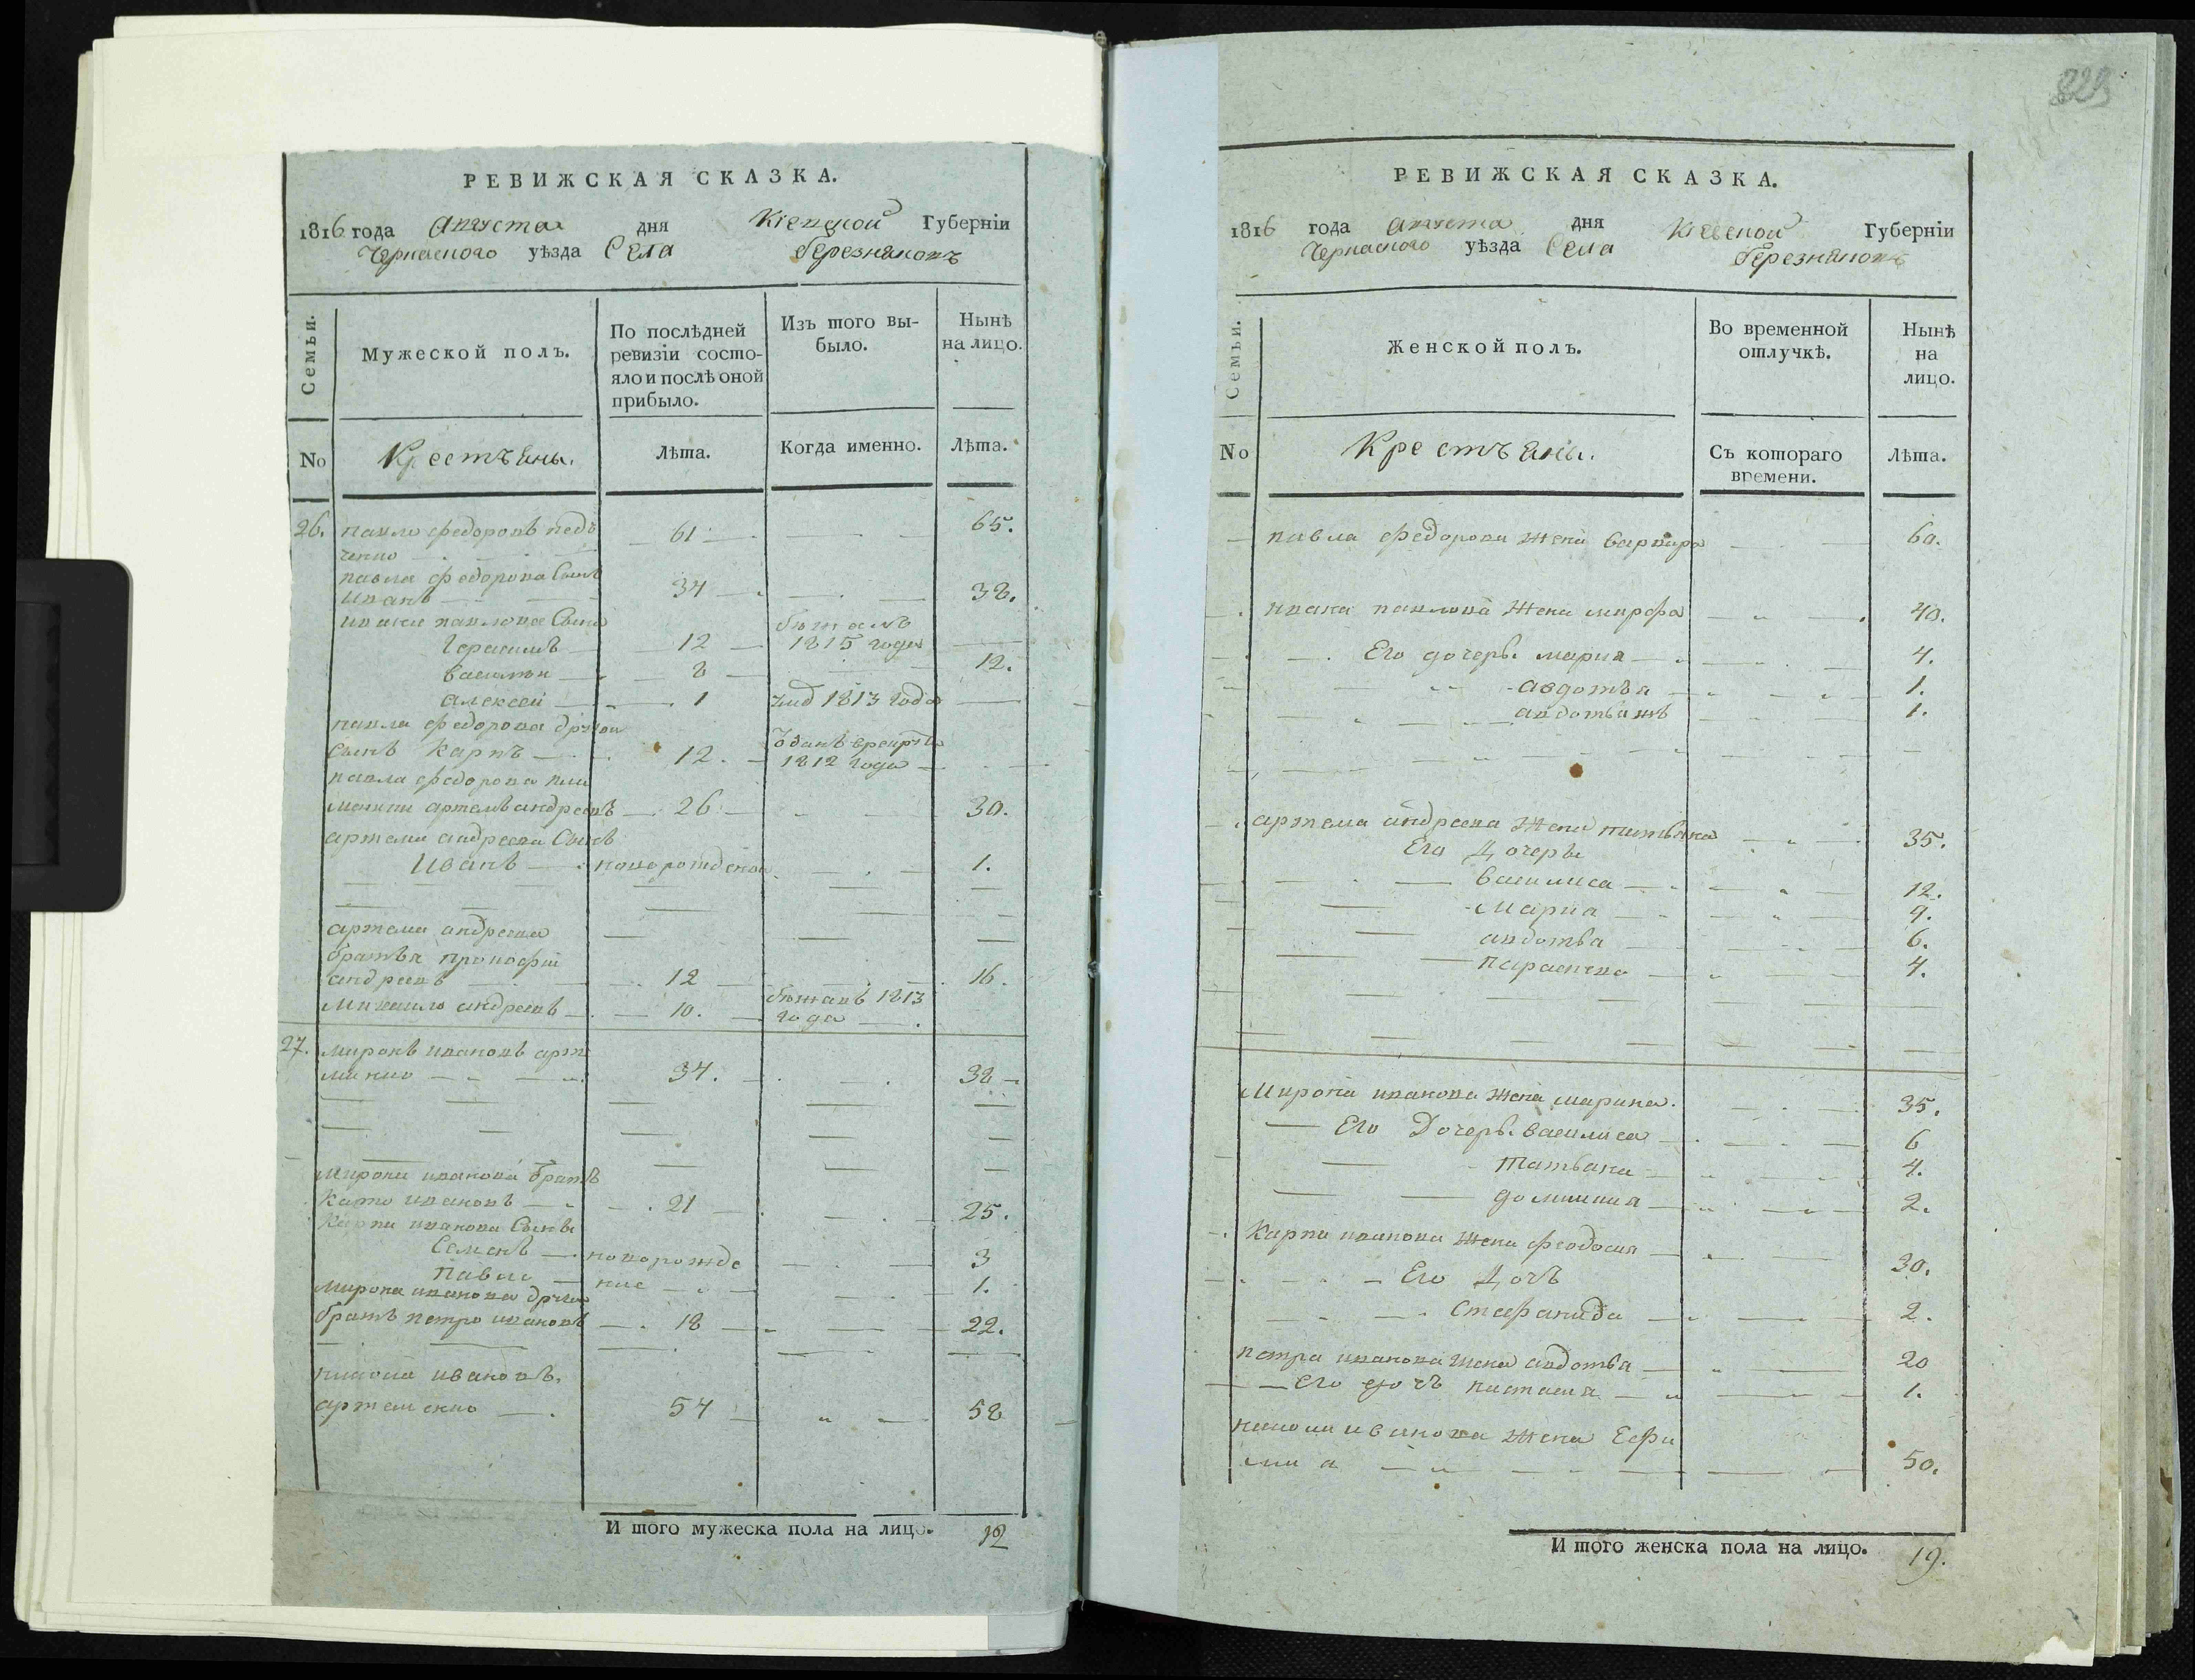 РЕВИЖСКАЯ СКАЗКА.
1816 года Августа дня Кіевской Губерніи
Черкаского уѣзда Села Березняковъ
Семьи.
Мужеской полъ.
По послѣдней ревизіи состо-
яло и послѣ оной прибыло.
Изъ того вы-
было.
Нынѣ
на лицо.
No
Крестъяны.
Лѣта.
Когда именно.
Лѣта.
26. павло федоровъ 61 65.
ченко
павла федорова Сынъ
иванъ 34 38.
ивана павлова Сыны
Герасимъ 12 бѣжалъ 1815 года
василъи 8 12.
алексей 1 1813 года
павла федорова другои
Сынъ карпъ 12. 1812 года
павла федорова пле
меники артемъ андреевъ 26 30.
артема андреева Сынъ
Иванъ новорожденои 1.
артема андреева
братъя прокофий
андреевъ 12 16.
михаило андреевъ 10. бѣжавъ 1813
года
27. миронъ ивановъ арте
менко 34. 38
мирона иванова братъ
карпо ивановъ 21 25.
карпа иванова Сынъи
Семенъ новорожде 3
павло ние 1.
мирона иванова другои
братъ петро ивановъ 18 22.
никола ивановъ.
артеменко 54 58
И того мужеска пола на лицо. 12
РЕВИЖСКАЯ СКАЗКА.
1816 года августа дня Кіевской Губерніи
Черкаского уѣзда Села Березняковъ
Семьи.
Женской полъ.
Во временной
отлучкѣ.
Нынѣ
на
лицо.
No
Крестъяны.
Съ котораго
времени.
Лѣта.
павла Федорова жена варвара 60.
ивана павлова жена марфа 40.
Его дочеръи мария 4.
авдотъя 1.
авдотъя жъ 1.
артема андреева жена татъяна 35.
Его Дочеръи
василиса 12.
Мариа 9.
авдотъа 6.
параскева 4.
Мирона иванова жена марина. 35.
Его Дочеръи василиса 6
татъана 4.
домникиа 2.
Карпа иванова жена феодосия 30.
Его Дочъ
Стефанида 2.
петра иванова жена авдотъа 20
Его дочъ настасиа 1.
николи иванова жена Ефи
миа 50.
И того женска пола на лицо. 19.